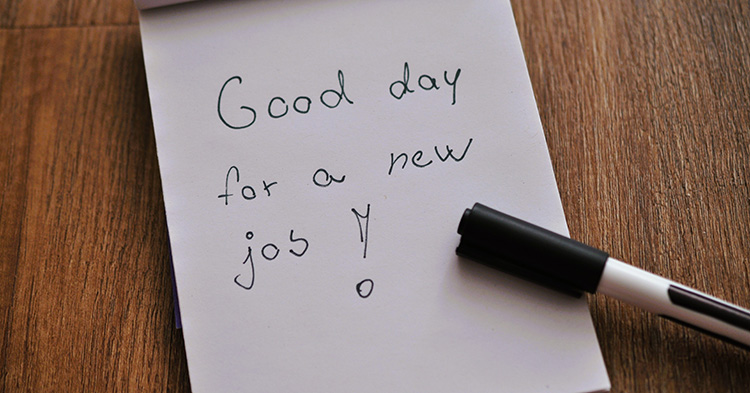 Good day
for a new
job !